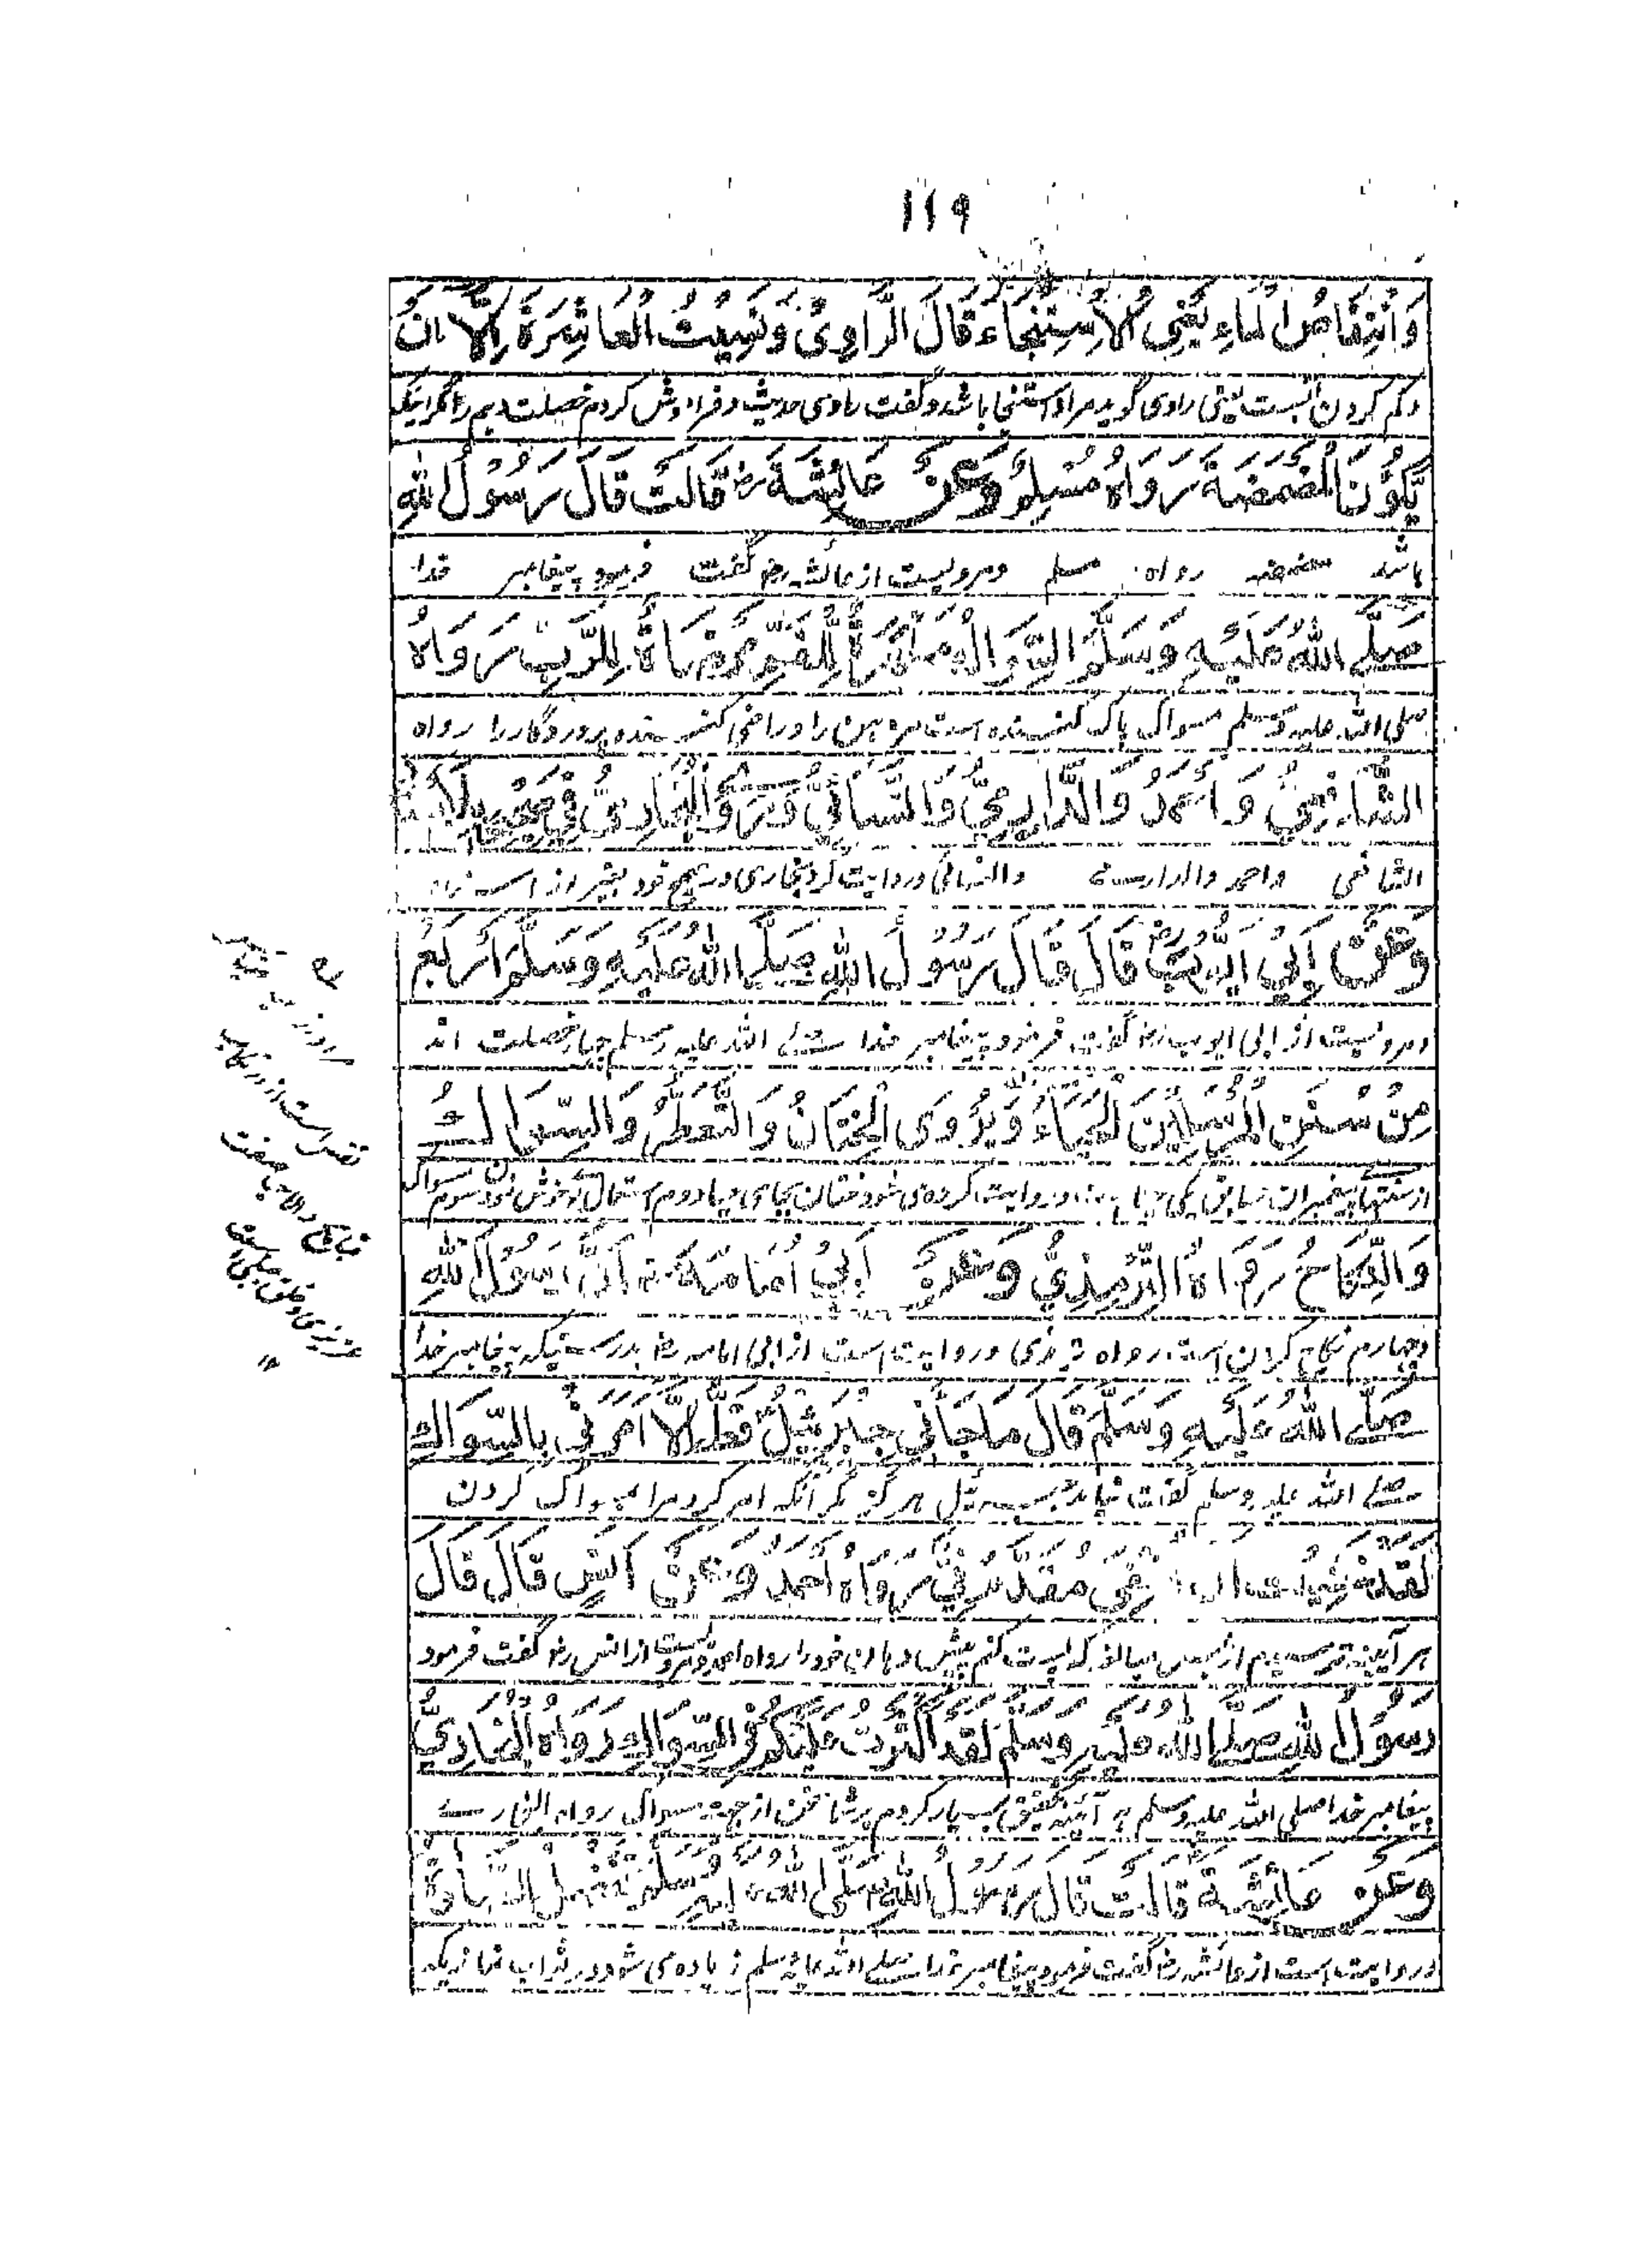 119
وَانْتِقَاصُ الْمَاءِ يَعْنِي الْاِسْتِنْجَاءَ قَالَ الرَّاوِيُّ وَنَسِيْتُ الْعَاشِرَةَ اِلَّا اَنْ
وکم کردن آبست یعنی راوی گوید مراد استنجا باشد و گفت راوی حدیث و فراموش کردم خصلت دهم را مگر اینکه
يَّكُوْنَ الْمَضْمَضَةَ رَوَاهُ مُسْلِمٌ وَعَنْ عَائِشَةَ رض قَالَتْ قَالَ رَسُوْلُ اللهِ
باشد مضمضه رواه مسلم ومرویست از عائشه رض گفت فرمود پیغامبر خدا
صَلَّى اللهُ عَلَيْهِ وَسَلَّمَ السِّوَاكُ مَطْهَرَةٌ لِّلْفَمِ مَرْضَاةٌ لِلرَّبِّ رَوَاهُ
صلی الله علیه وسلم مسواک پاک کننده است مر دهن را و راضی کننده پروردگار را رواه
الشَّافِعِيُّ وَاَحْمَدُ وَالدَّارِمِيُّ وَالنَّسَائِيُّ وَرَوَى الْبُخَارِيُّ فِيْ صَحِيْحِهٖ بِلَا
الشافعی واحمد والدارمی والنسائی وروایت کرد بخاری در صحیح خود بغیر از
وَعَنْ اَبِيْ اَيُّوْبَ رض قَالَ قَالَ رَسُوْلُ اللهِ صَلَّى اللهُ عَلَيْهِ وَسَلَّمَ اَرْبَعٌ
ومرویست از ابی ایوب رض گفت فرمود پیغامبر خدا صلی الله علیه وسلم چهار خصلت اند
مِنْ سُنَنِ الْمُرْسَلِيْنَ الْحَيَاءُ وَيُرْوَى الْخِتَانُ وَالتَّعَطُّرُ وَالسِّوَاكُ
از سنتهای پیغمبران سابق یکی حیا وروایت کرده می شود ختان بجای حیا دوم استعمال خوش سوم مسواک
وَالنِّكَاحُ رَوَاهُ التِّرْمِذِيُّ وَعَنْ اَبِيْ اُمَامَةَ اَنَّ رَسُوْلَ اللهِ
وچهارم نکاح کردن است رواه ترمذی وروایت است از ابی امامه رض بدرستیکه پیغامبر خدا
صَلَّى اللهُ عَلَيْهِ وَسَلَّمَ قَالَ مَا جَاءَنِيْ جِبْرَئِيْلُ قَطُّ اِلَّا اَمَرَنِيْ بِالسِّوَاكِ
صلی الله علیه وسلم گفت نیامد جبرئیل هرگز مگر آنکه امر کرد مرا بمسواک کردن
لَقَدْ خَشِيْتُ مُقَدَّمَ فِيَّ رَوَاهُ اَحْمَدُ وَعَنْ اَنَسٍ قَالَ قَالَ
هر آیینه ترسیدم از بس مبالغه پیش دهان خود را رواه احمد ومرویست از انس رض گفت فرمود
رَسُوْلُ اللهِ صَلَّى اللهُ عَلَيْهِ وَسَلَّمَ لَقَدْ اَكْثَرْتُ عَلَيْكُمْ فِي السِّوَاكِ رَوَاهُ الْبُخَارِيُّ
پیغامبر خدا صلی الله علیه وسلم بتحقیق بسیار کردم بر شما سخن از جهت مسواک رواه البخاری
وَعَنْ عَائِشَةَ قَالَتْ قَالَ رَسُوْلُ اللهِ صَلَّى اللهُ عَلَيْهِ وَسَلَّمَ تَفْضُلُ الصَّلٰوةُ
وروایت است از عائشه رض گفت فرمود پیغامبر خدا صلی الله علیه وسلم زیاده می شود در ثواب نمازیکه